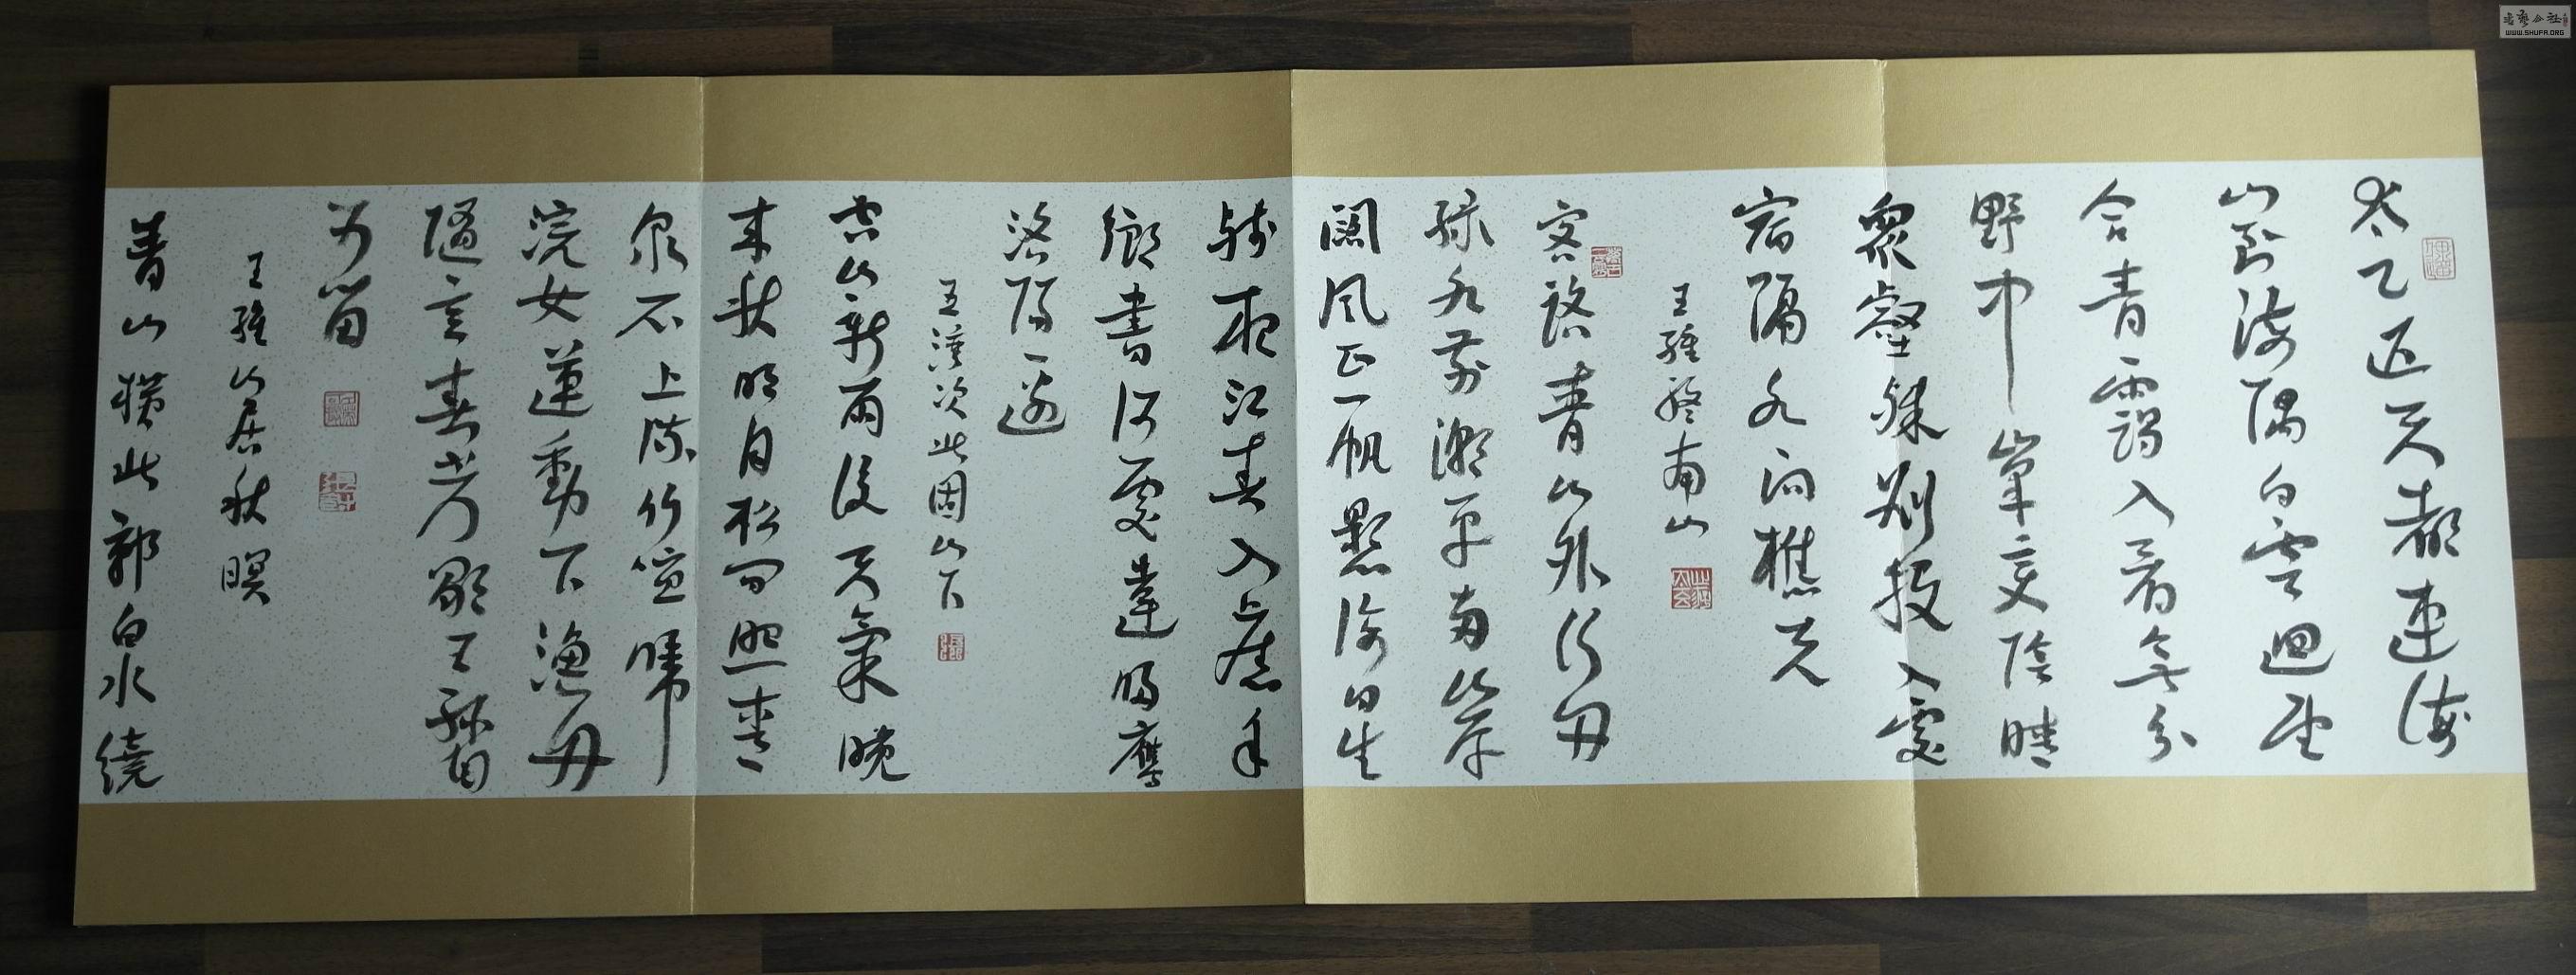 太乙近天都連海
山到海隅白雲迴望
合青靄入看無分
野中峯變陰晴
眾壑殊別投入處
宿隔水問樵夫
王維終南山
客路青山外行舟
綠水前潮平兩岸
闊風正一帆懸海日生
殘夜江春入舊年
鄉書何處達歸雁
洛陽邊
王灣次北固山下
空山新雨後天氣晚
來秋明月松間照清
泉石上流竹喧歸
浣女蓮動下漁舟
隨意春芳歇王孫自
可留
王維山居秋暝
青山橫北郭白水繞
WWW.SHUFA.ORG